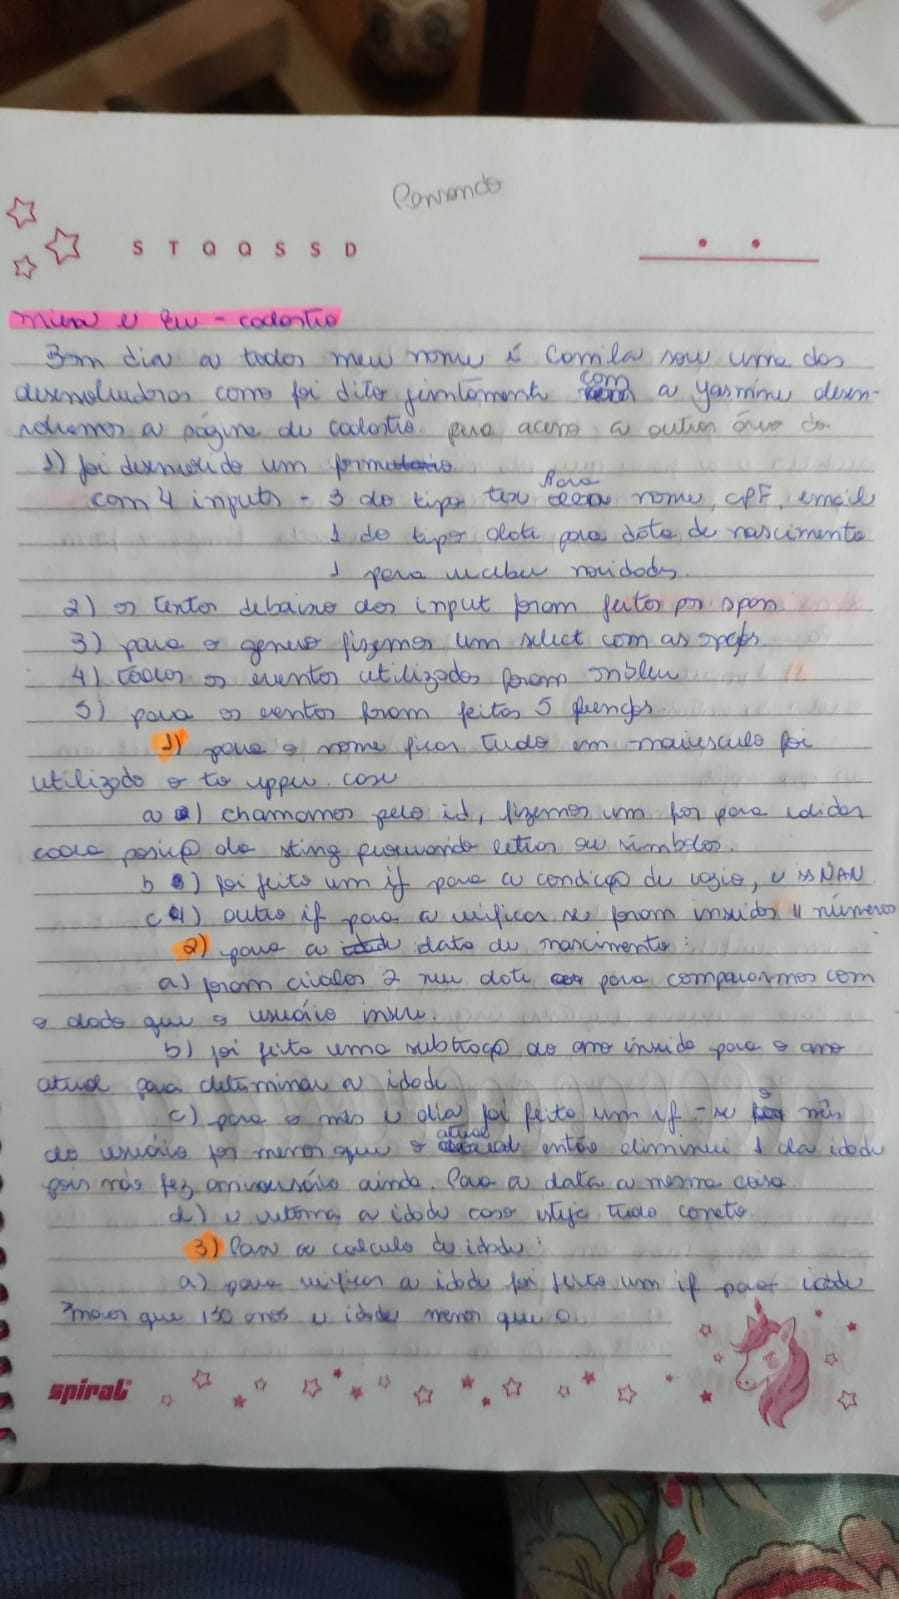 S T Q Q S S D
eu - cadastro
Bom dia a todos meu nome é Camila sou uma das
desenvolvedoras como foi dito juntamente com a Yasmine desen-
volvemos a página de cadastro. para acesso a outras área do
1) foi desenvolvido um formulario
com 4 inputs - 3 do tipo tex para nome, CPF, email
1 do tipo date para data de nascimento
1 para receber novidades.
2) os textos debaixo dos input foram feitos por span
3) para o genero fizemos um select com as opções
4) todos os eventos utilizados foram onblur
5) para os eventos foram feitos 5 funções
1) para o nome ficar tudo em maiusculo foi
utilizado o to upper. case
a) chamamos pelo id, fizemos um for para validar
cada posição da sting procurando letras ou simbolos.
b) foi feito um if para a condição de vazio, e isNAN
c) outro if para a verificar se foram inseridos 11 números
2) para a data de nascimento:
a) foram criados 2 new date para compararmos com
o dado que o usuário insere.
b) foi feito uma subtração do ano inserido para o ano
atual para determinar a idade
c) para o mês e dia foi feito um if - se o mês
do usuário for menor que o atual então eliminei 1 da idade
pois não fez aniversário ainda. Para a data a mesma coisa
d) e retorna a idade caso esteja tudo correto.
3) Para o calculo de idade:
a) para verificar a idade foi feito um if para idade
maior que 130 anos e idade menor que 0.
spiral